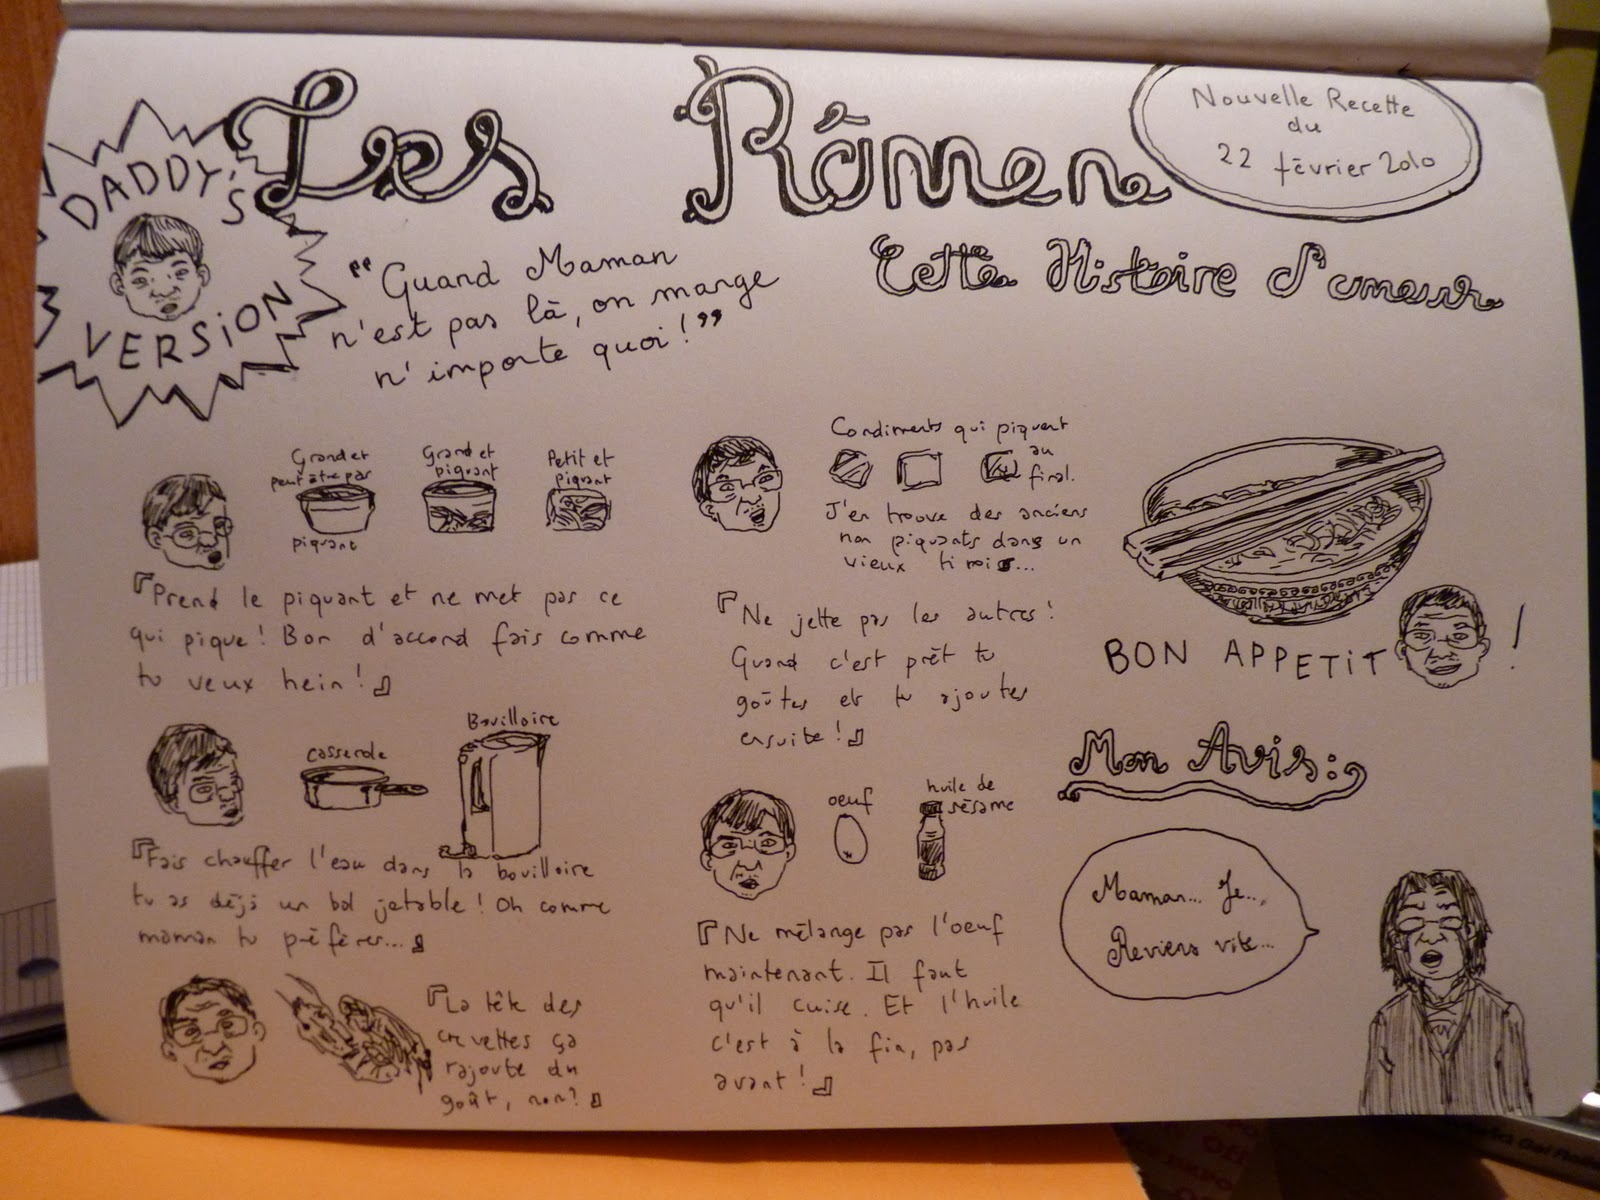 DADDY'S
VERSION
Les Rāmen
Nouvelle Recette
du
22 février 2010
Cette Histoire d'amour
"Quand Maman
n'est pas là, on mange
n'importe quoi!"
Grand et
peut être pas
piquant
Grand et
piquant
Petit et
piquant
『Prend le piquant et ne met pas ce
qui pique! Bon d'accord fais comme
tu veux hein!』
casserole
Bouilloire
『Fais chauffer l'eau dans la bouilloire
tu as déjà un bol jetable! Oh comme
maman tu préfères...』
『La tête des
crevettes ça
rajoute du
goût, non?』
Condiments qui piquent
au
final.
J'en trouve des anciens
non piquants dans un
vieux tiroir...
『Ne jette pas les autres!
Quand c'est prêt tu
goûtes et tu ajoutes
ensuite!』
oeuf
huile de
sésame
『Ne mélange pas l'oeuf
maintenant. Il faut
qu'il cuise. Et l'huile
c'est à la fin, pas
avant!』
BON APPETIT !
Mon Avis:
Maman... Je...
Reviens vite...